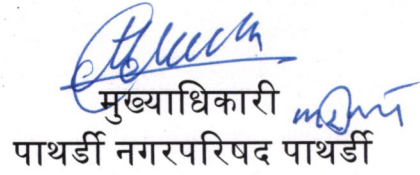 मुख्याधिकारी
पाथर्डी नगरपरिषद पाथर्डी